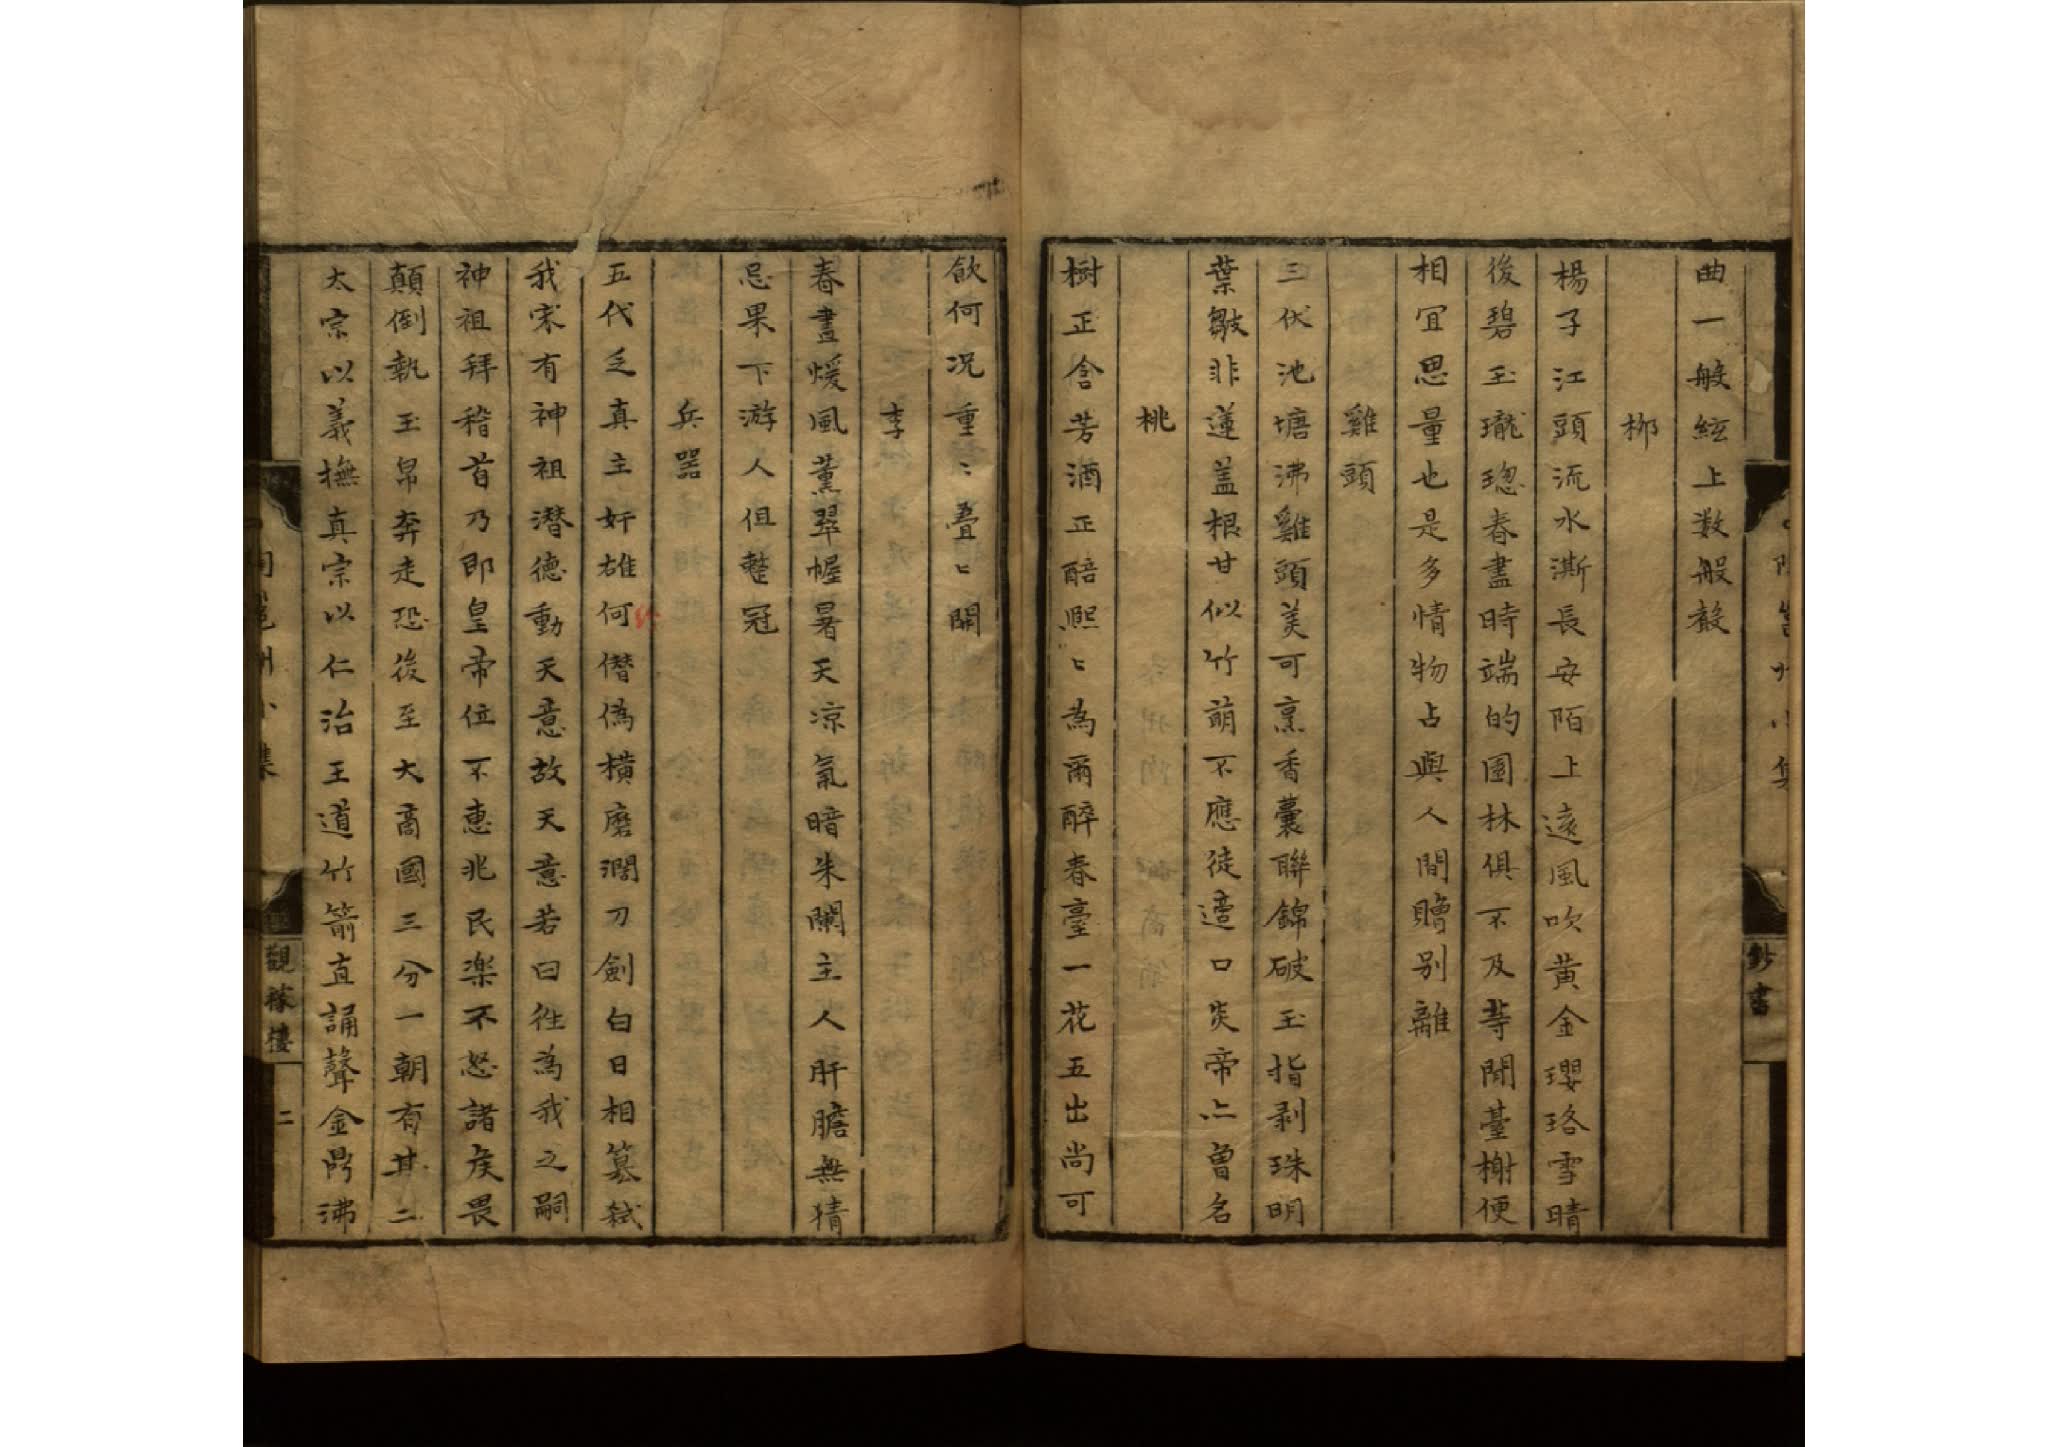 曲一般絃上数般聲
柳
楊子江頭流水澌長安陌上遠風吹黄金瓔珞雪晴
後碧玉瓏璁春晝時端的園林俱不及等閒臺榭便
相冝思量也是多情物占與人間贈别離
雞頭
三伏池塘沸雞頭美可烹香囊聯錦破玉指剥珠明
葉皺非蓮盖根甘似竹萌不應徒適口炎帝亦曽名
桃
樹正含芳酒正醅熙〻為爾醉春臺一花五出尚可
飲何况重〻疊〻開
李
春晝煖風薰翠幄暑天凉氣暗朱闌主人肝膽無猜
忌果下游人但整冠
兵器
五代乏真主奸雄何僣偽横磨濶刀劍白日相簒弑
我宋有神祖潜德動天意故天意若曰徃為我之嗣
神祖拜稽首乃即皇帝位不惠兆民楽不怒諸矦畏
顛倒執玉帛奔走恐後至大啇國三分一朝有其二
太宗以義撫真宗以仁治王道竹箭直誦聲金鼎沸
觀稼樓
二
鈔書